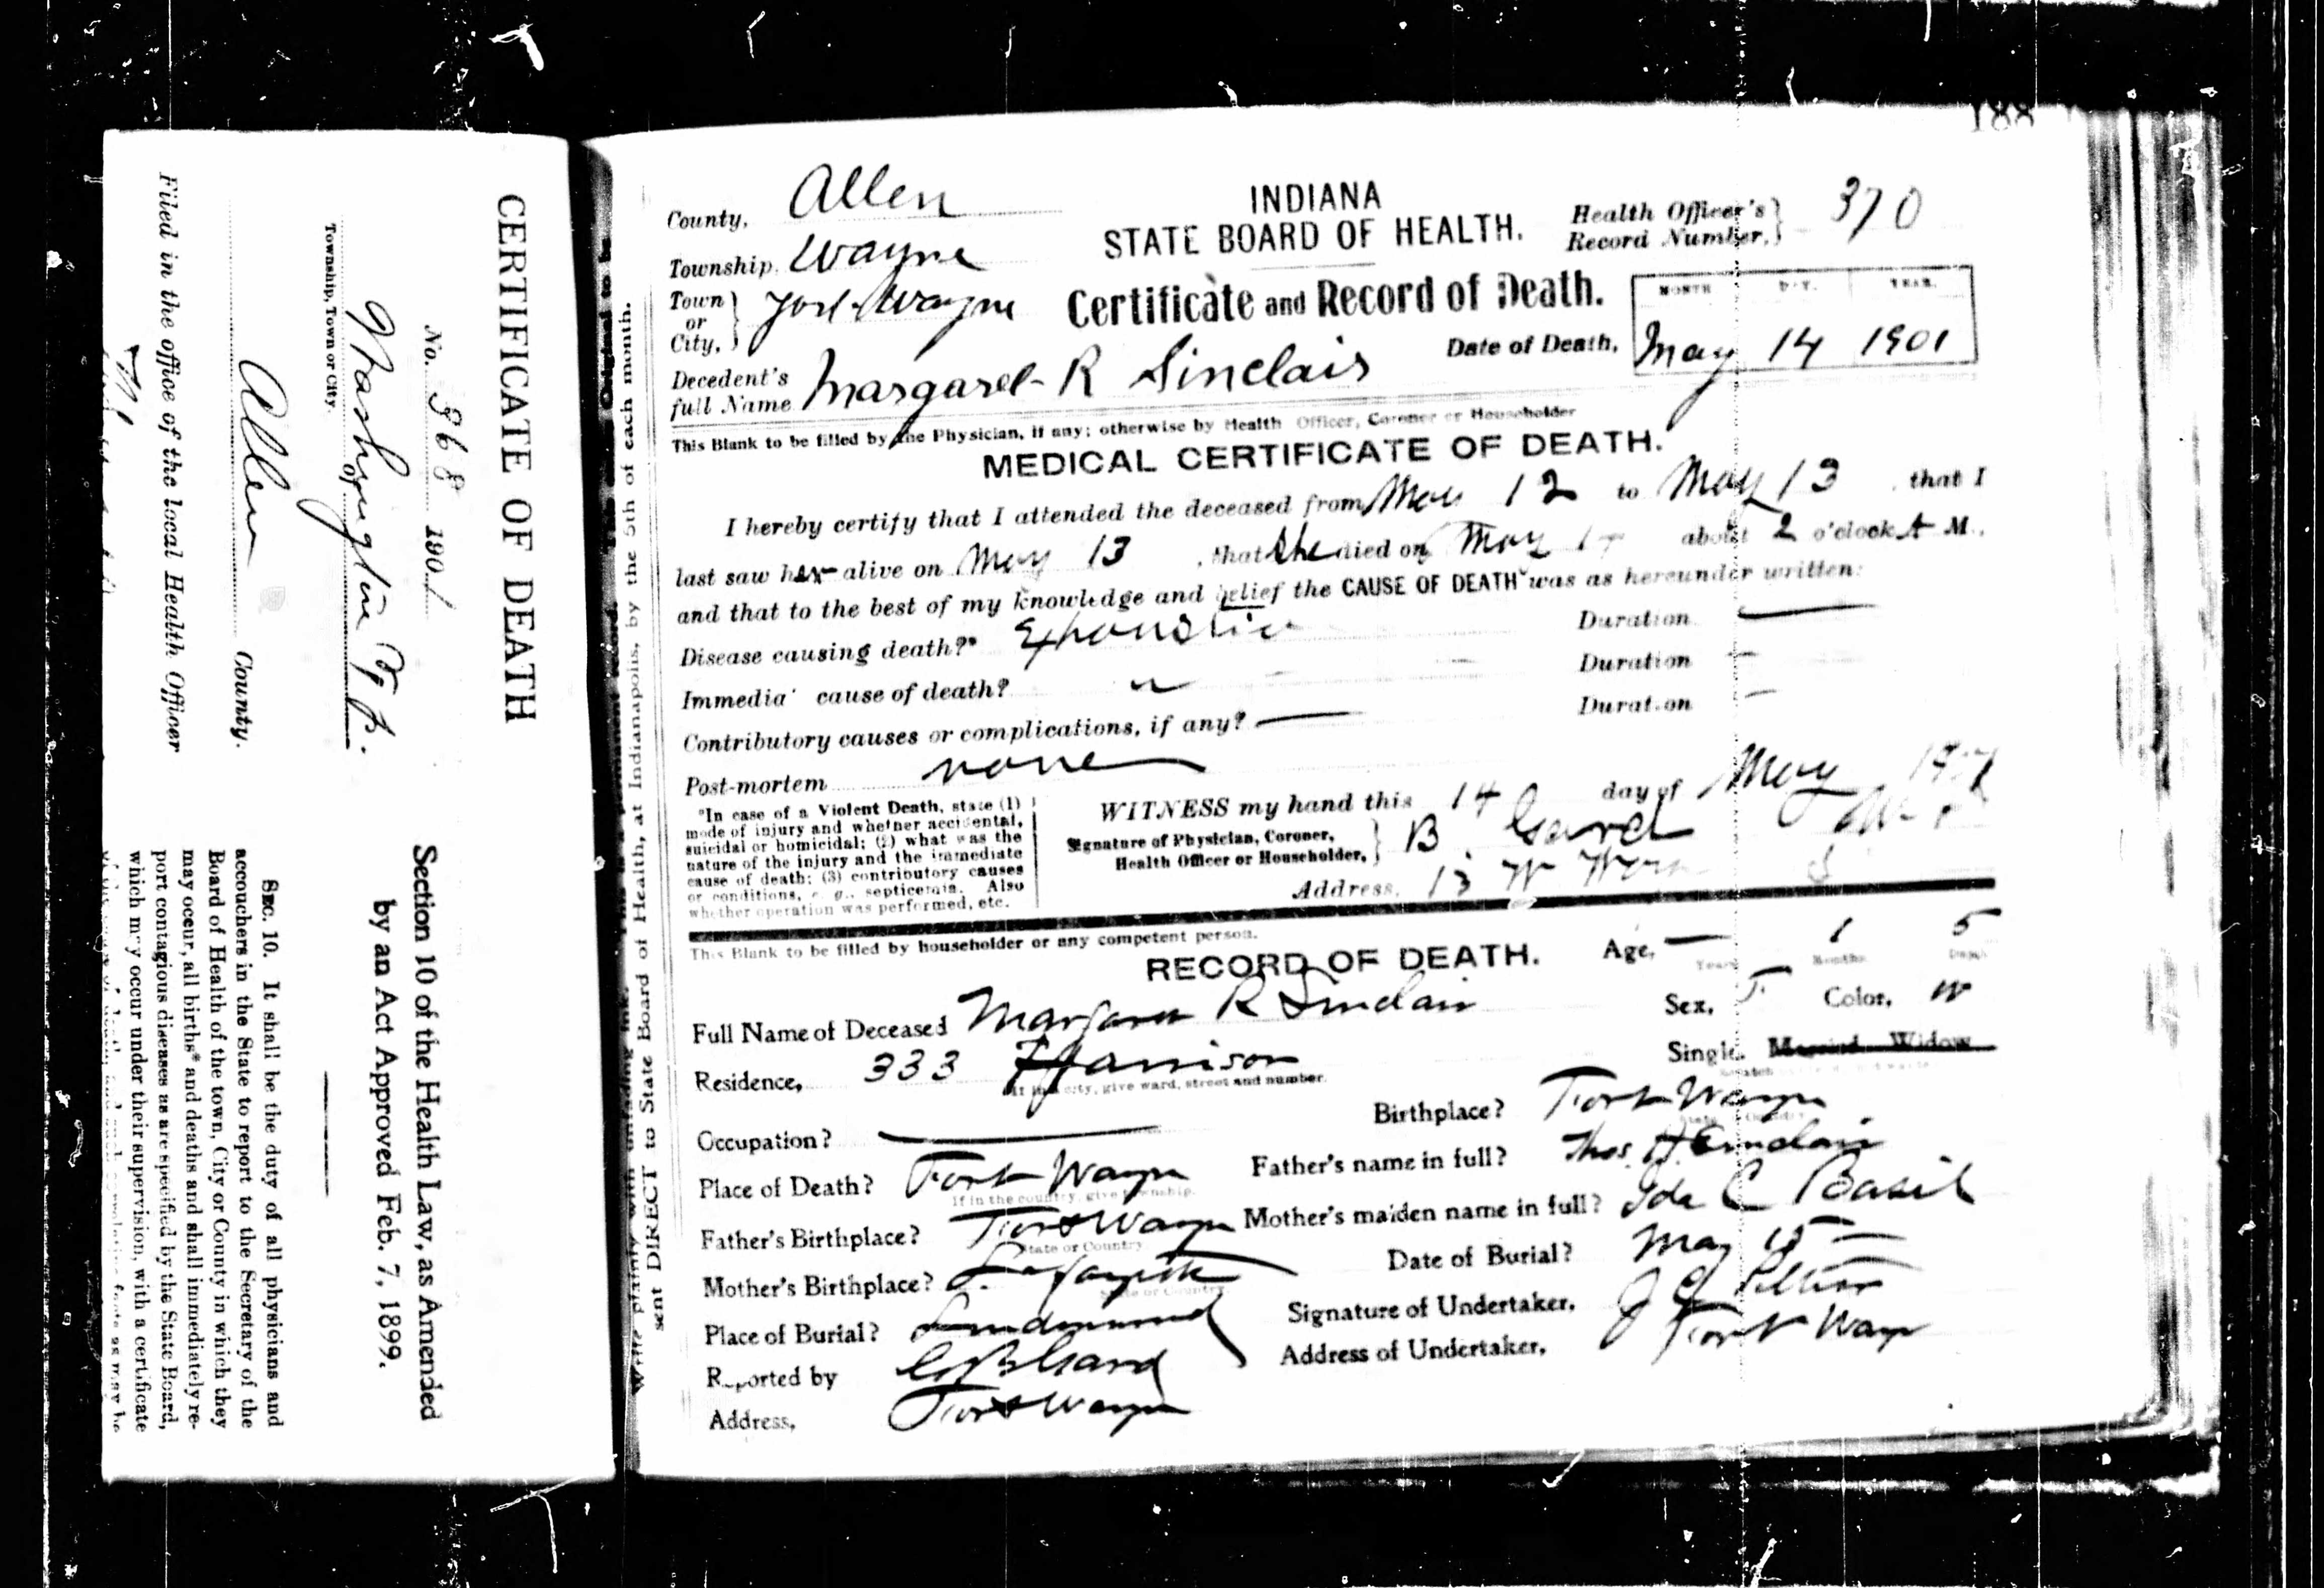 CERTIFICATE OF DEATH
No. 368 1901
Washington Tp.
Township, Town or City.
of
Allen County.
Filed in the office of the local Health Officer
Section 10 of the Health Law, as Amended
by an Act Approved Feb. 7, 1899.
SEC. 10. It shall be the duty of all physicians and
accouchers in the State to report to the Secretary of the
Board of Health of the town, City or County in which they
may occur, all births* and deaths and shall immediately re-
port contagious diseases as are specified by the State Board,
which may occur under their supervision, with a certificate
sent DIRECT to State Board of Health, at Indianapolis, by the 5th of each month.
188
County, Allen
INDIANA
STATE BOARD OF HEALTH.
Health Officer's
Record Number, 370
Township Wayne
Town or City, Fort Wayne
Certificate and Record of Death.
MONTH DAY YEAR
Date of Death, May 14 1901
Decedent's
full Name Margaret R Sinclair
This Blank to be filled by the Physician, if any; otherwise by Health Officer, Coroner or Householder
MEDICAL CERTIFICATE OF DEATH.
I hereby certify that I attended the deceased from May 12 to May 13, that I
last saw her alive on May 13, that she died on May 14 about 2 o'clock A M.,
and that to the best of my knowledge and belief the CAUSE OF DEATH was as hereunder written:
Disease causing death?* Exhaustion Duration —
Immedia cause of death? " Duration —
Contributory causes or complications, if any? — Duration —
Post-mortem none
*In case of a Violent Death, state (1)
mode of injury and whether accidental,
suicidal or homicidal; (2) what was the
nature of the injury and the immediate
cause of death; (3) contributory causes
or conditions, e. g., septicemia. Also
whether operation was performed, etc.
WITNESS my hand this 14 day of May 1901
Signature of Physician, Coroner,
Health Officer or Householder, B Gard
Address, 13 W
This Blank to be filled by householder or any competent person.
RECORD OF DEATH.
Age, — Years 1 Months 5 Days
Full Name of Deceased Margaret R Sinclair
Sex, F Color, W
Residence, 333 Harrison
If in city, give ward, street and number.
Single. Married Widow
Occupation? —
Birthplace? Fort Wayne
State or Country
Place of Death? Fort Wayne
If in the country, give township.
Father's name in full? Thos. H Sinclair
Father's Birthplace? Fort Wayne
State or Country
Mother's maiden name in full? Ida C Basil
Mother's Birthplace? Lafayette
State or Country
Date of Burial? May 15
Place of Burial? Lindenwood
Signature of Undertaker, J C Peltier
Reported by C B Gard
Address of Undertaker, Fort Wayne
Address, Fort Wayne